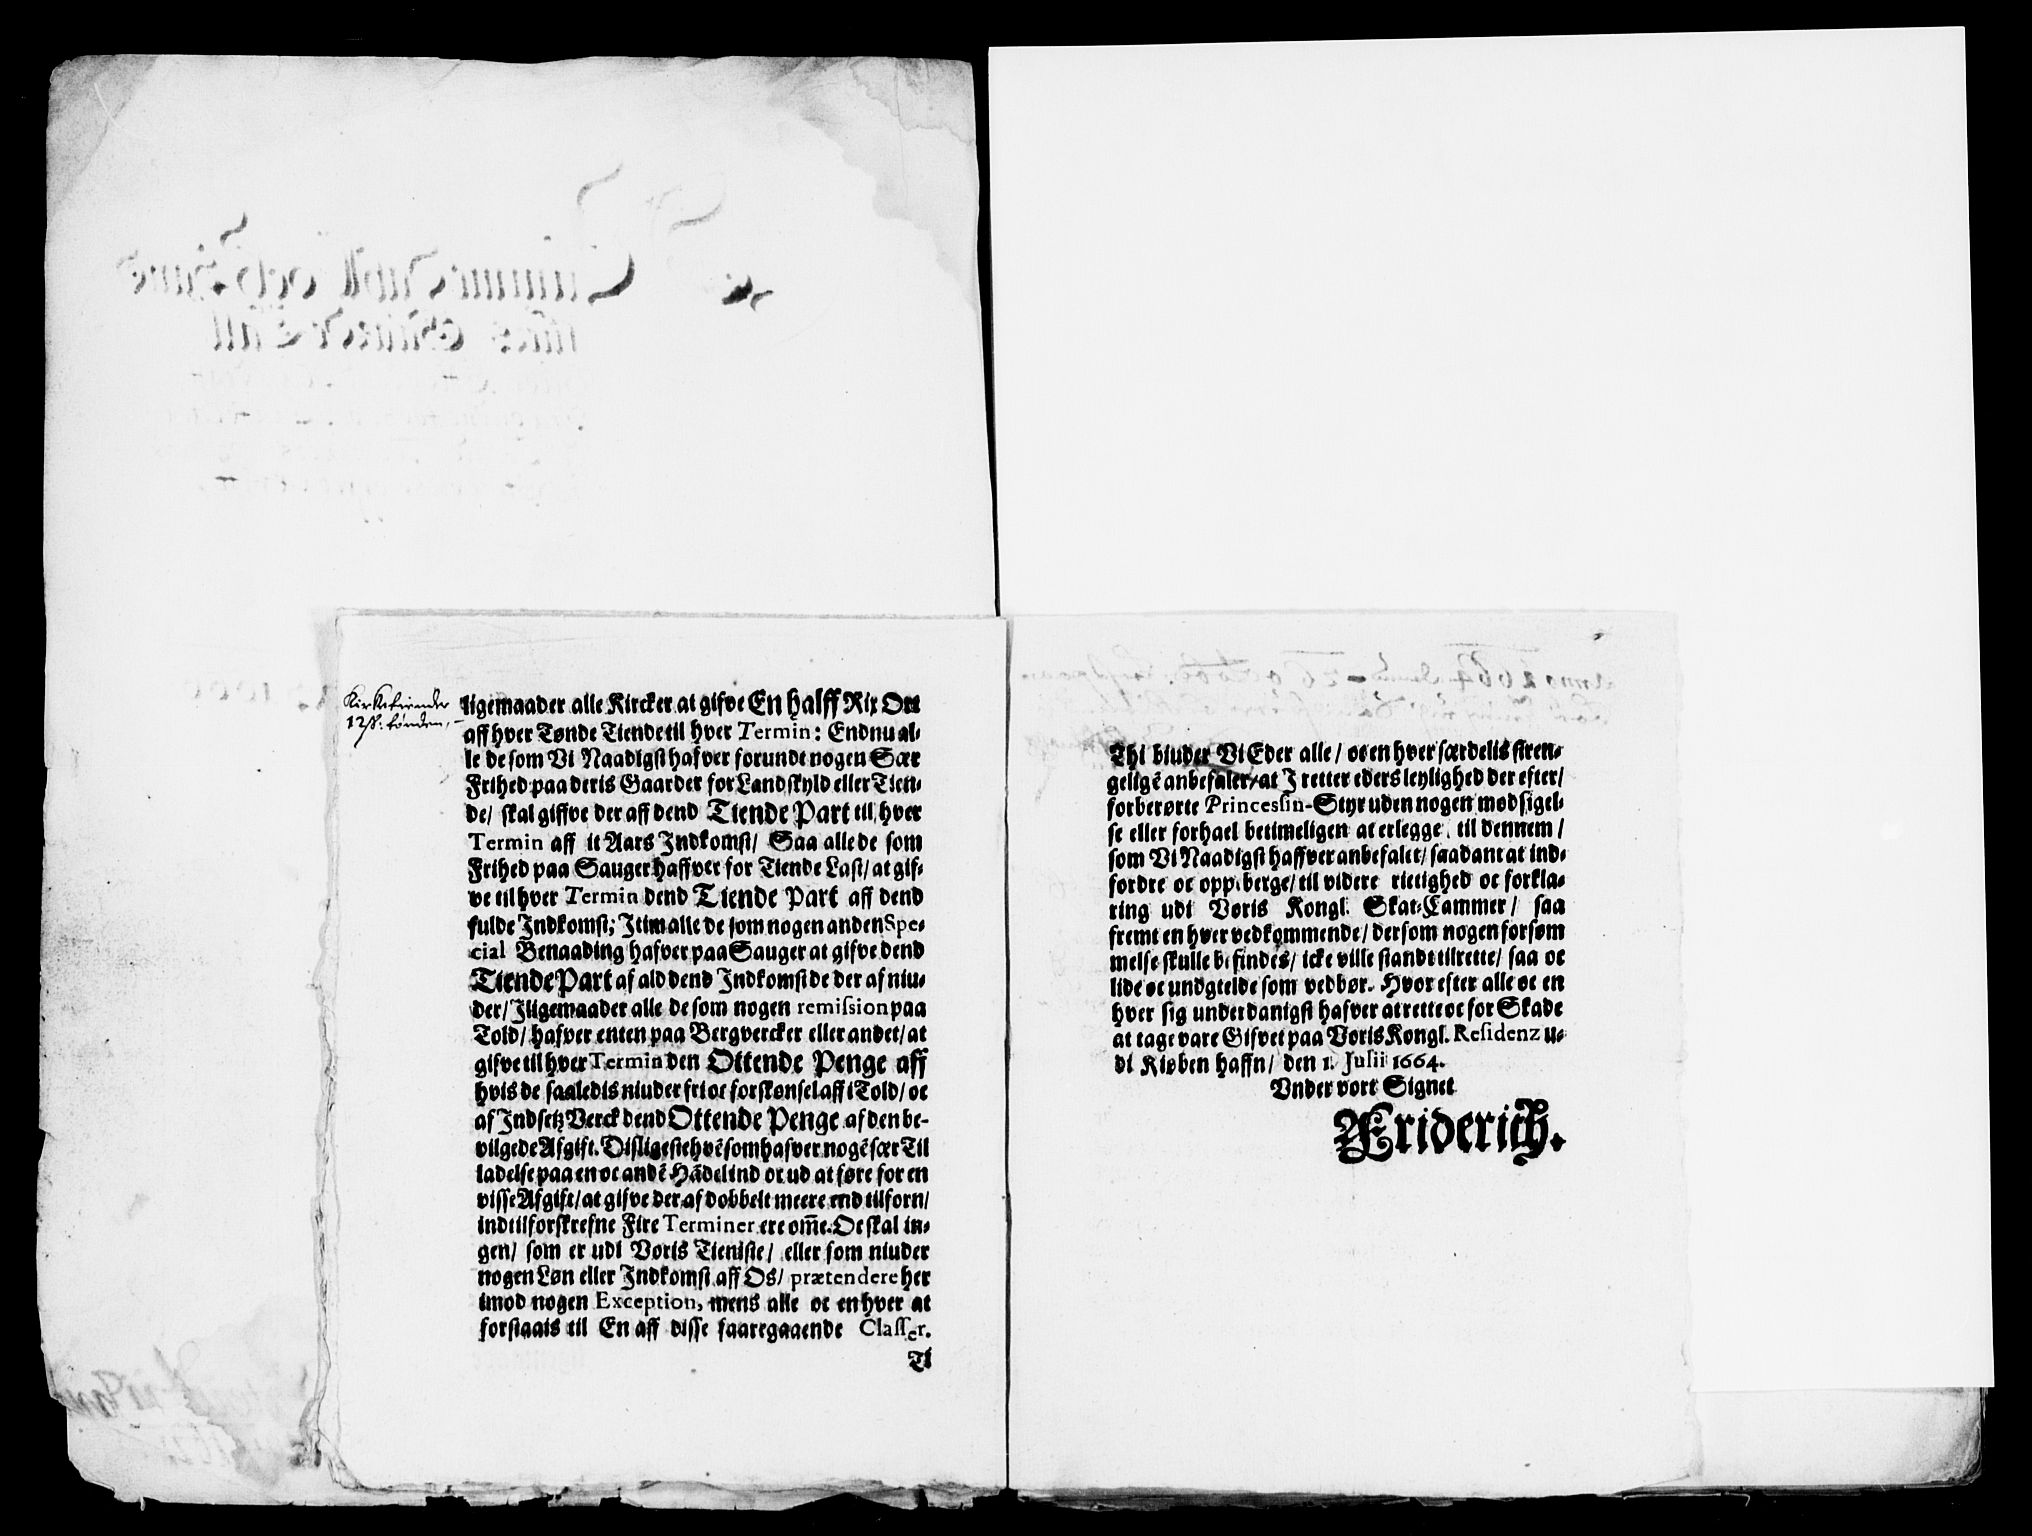 Kirketiender
12 ß. tønden,
ligemaader alle Kircker at gifve En halff Rix Ort
aff hver Tønde Tiende til hver Termin: Endnu al-
le de som Vi Naadigst hafver forundt nogen Sær
Frihed paa deris Gaarder for Landskyld eller Tien-
de/ skal giffve der aff dend Tiende Part til hver
Termin aff it Aars Indkomst/ Saa alle de som
Frihed paa Sauger haffver for Tiende Last/ at gif-
ve til hver Termin dend Tiende Part aff dend
fulde Indkomst; Itim alle de som nogen anden Spe-
cial Benaading hafver paa Sauger at gifve dend
Tiende Part af ald dend Indkomst de der af niu-
der/ Iligemaader alle de som nogen remission paa
Told/ hafver enten paa Bergvercker eller andet/ at
gifve til hver Termin den Ottende Penge aff
hvis de saaledis niuder fri oc forskønsel aff i Told/ oc
af Indsetz Verck dend Ottende Penge af den be-
vilgede Afgift. Disligeste hvẽ som hafver nogẽ sær Til
ladelse paa en oc andẽ Hãdel ind oc ud at føre for en
visse Afgift/ at gifve der af dobbelt meere end tilforn/
indtil forskrefne Fire Terminer ere om̃e. Oc skal in-
gen/ som er udi Voris Tieniste/ eller som niuder
nogen Løn eller Indkomst aff Os/ prætendere her
imod nogen Exception, mens alle oc en hver at
forstaais til En aff disse faaregaaende Classer.
Ti
Thi biuder Vi Eder alle/ oc en hver særdelis stren-
geligẽ anbefaler/ at I retter eders leylighed der efter/
forberørte Princessin-Styr uden nogen modsigel-
se eller forhael betimeligen at erlegge til dennem/
som Vi Naadigst haffver anbefalet/ saadant at ind-
fordre oc oppeberge/ til videre rictighed oc forkla-
ring udi Voris Kongl. Skat-Cammer/ saa
fremt en hver vedkommende/ dersom nogen forsøm
melse skulle befindes/ icke ville standt tilrette/ saa oc
lide oc undgielde som vedbør. Hvor efter alle oc en
hver sig underdanigst hafver at rette oc for Skade
at tage vare Gifvet paa Voris Kongl. Residenz u-
di Kiøben haffn/ den 1. Julii 1664.
Vnder vort Signet
Friderich.